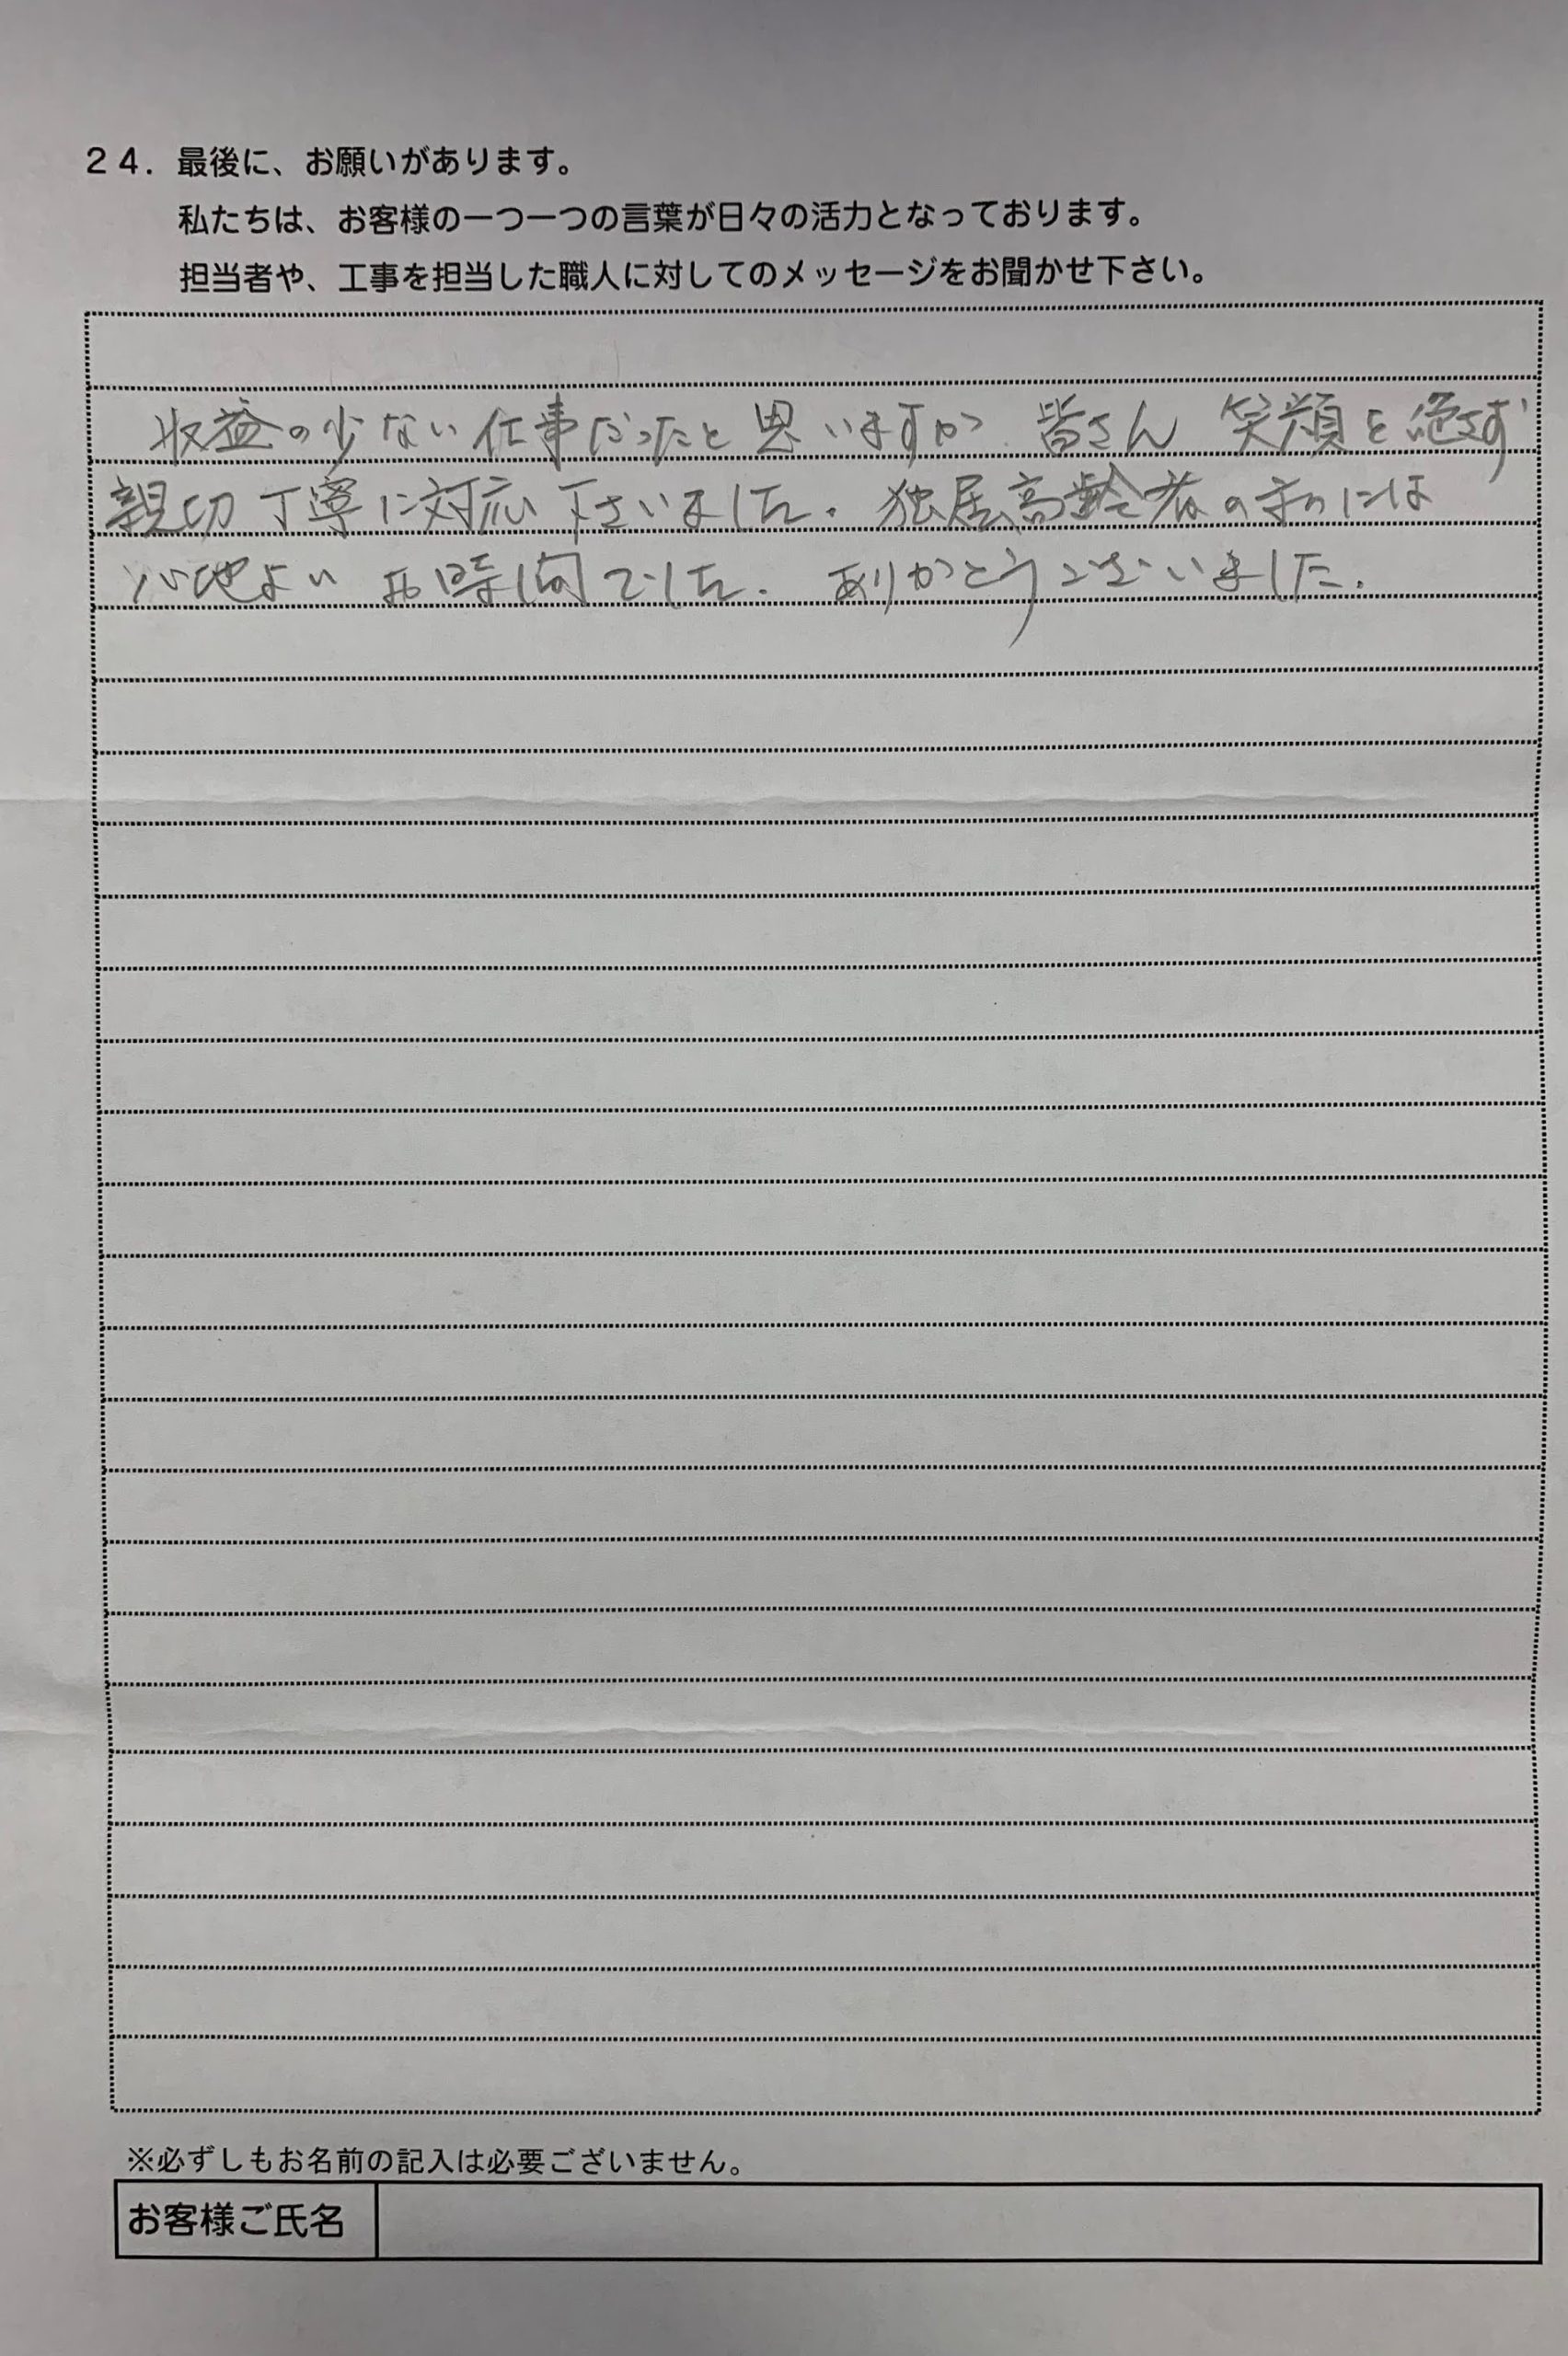 ２４．最後に、お願いがあります。
私たちは、お客様の一つ一つの言葉が日々の活力となっております。
担当者や、工事を担当した職人に対してのメッセージをお聞かせ下さい。
収益の少ない仕事だったと思いますが 皆さん 笑顔を絶さず
親切丁寧に対応下さいました。独居高齢者の私には
心地よい お時間でした。ありがとうございました。
※必ずしもお名前の記入は必要ございません。
お客様ご氏名